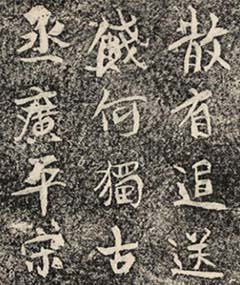 散有追送
餞何獨古
丞廣平宋